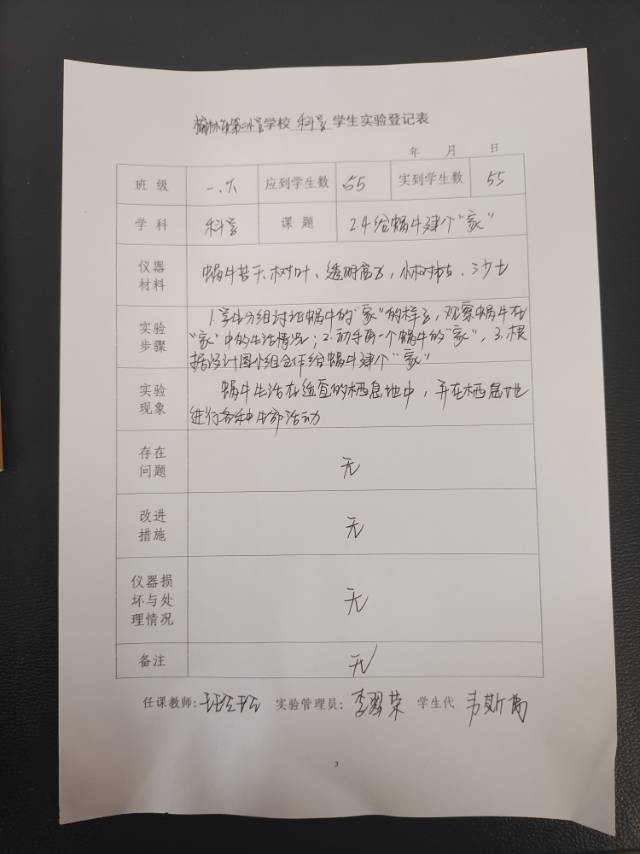 学校 科学 学生实验登记表
年 月 日
班 级 一.六 应到学生数 55 实到学生数 55
学 科 科学 课 题 2.4给蜗牛建个“家”
仪器 蜗牛若干、树叶、透明盒子、小树枝、沙土
材料
1.学生分组讨论蜗牛的“家”的样子，观察蜗牛在
实验 “家”中的生活情况；2.动手画一个蜗牛的“家”，3.根
步骤 据设计图小组合作给蜗牛建个“家”
实验 蜗牛生活在适宜的栖息地中，并在栖息地
现象 进行各种生命活动
存在
问题 无
改进
措施 无
仪器损
坏与处 无
理情况
备注 无
任课教师: 实验管理员: 李翠荣 学生代 韦斯
3